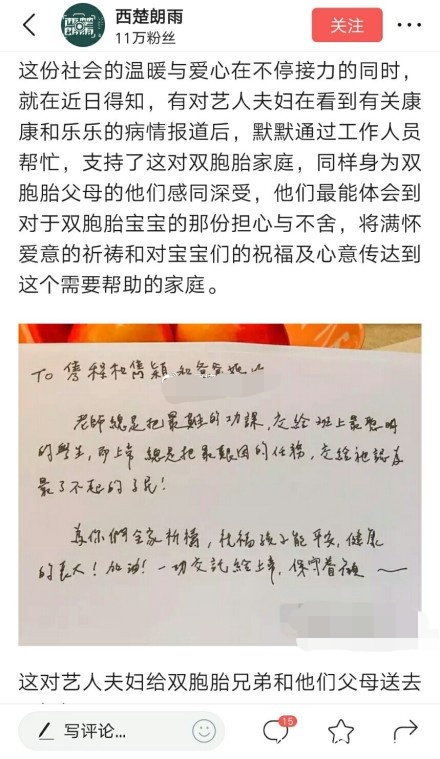 西楚朗雨
11万粉丝
关注
这份社会的温暖与爱心在不停接力的同时，
就在近日得知，有对艺人夫妇在看到有关康
康和乐乐的病情报道后，默默通过工作人员
帮忙，支持了这对双胞胎家庭，同样身为双
胞胎父母的他们感同深受，他们最能体会到
对于双胞胎宝宝的那份担心与不舍，将满怀
爱意的祈祷和对宝宝们的祝福及心意传达到
这个需要帮助的家庭。
To 雋程和雋穎和爸爸
老師總是把最難的功課，交給班上最聰明
的學生，而上帝總是把最艱困的任務，交給祂認為
最了不起的子民！
為你們全家祈禱，祝福孩子能平安，健康
的長大！加油！一切交託給上帝，保守眷顧
这对艺人夫妇给双胞胎兄弟和他们父母送去
写评论...
15